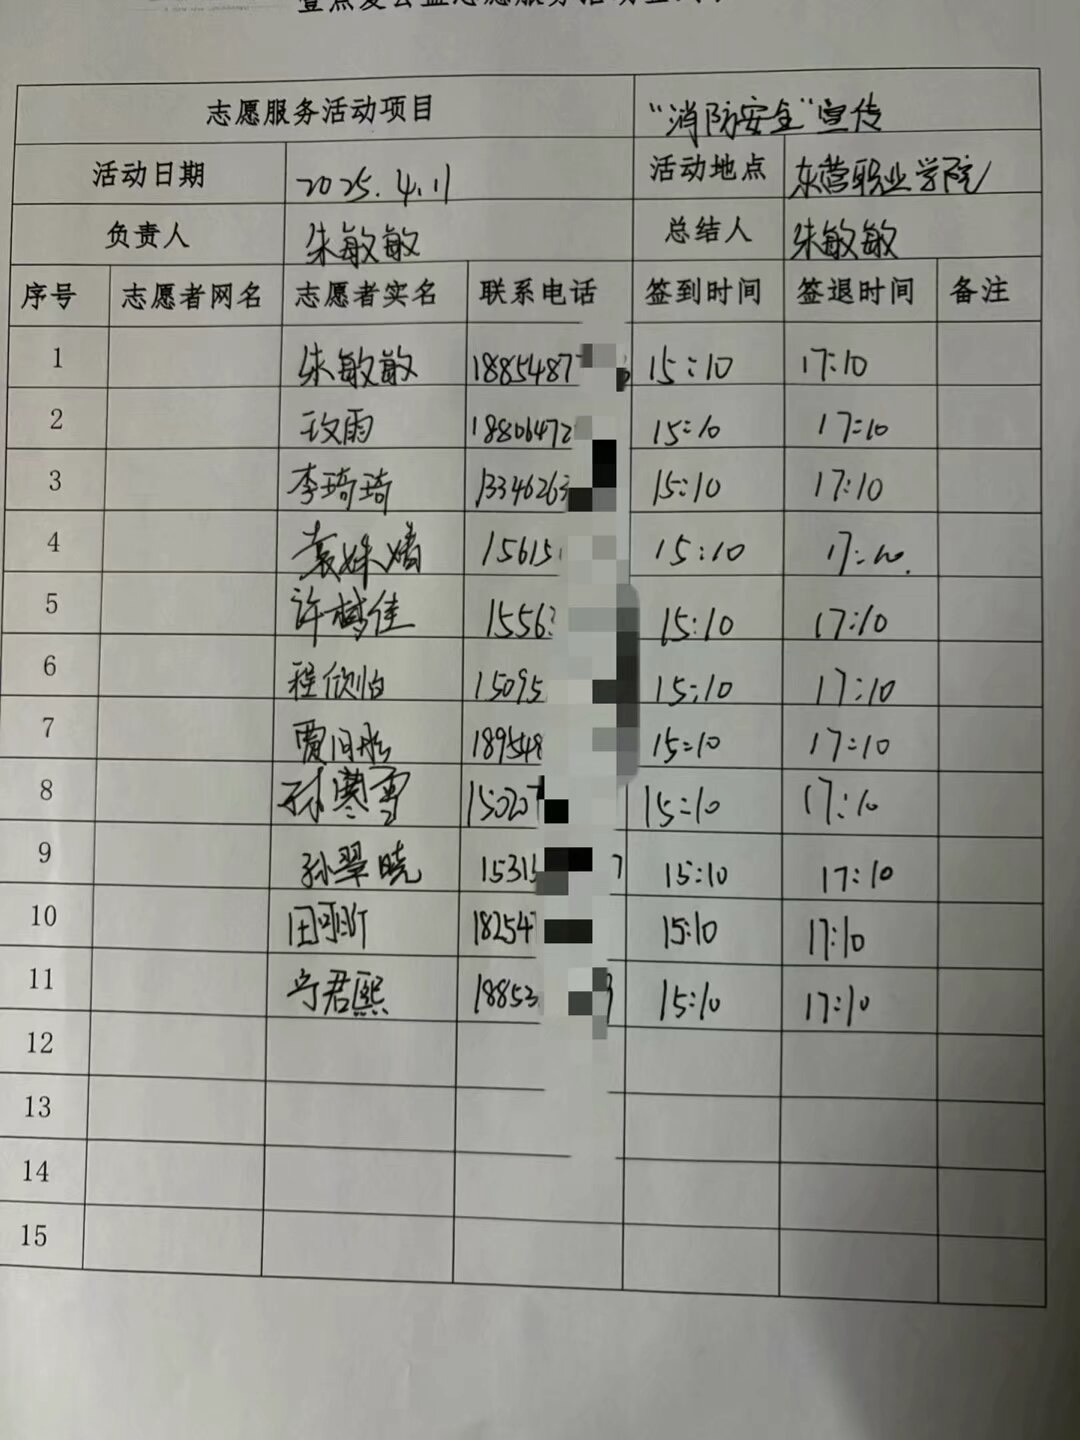 志愿服务活动项目 "消防安全"宣传
活动日期 2025.4.11 活动地点 东营职业学院
负责人 朱敏敏 总结人 朱敏敏
序号 志愿者网名 志愿者实名 联系电话 签到时间 签退时间 备注
1 朱敏敏 1885487 15:10 17:10
2 玫雨 18806472 15:10 17:10
3 李琦琦 13346263 15:10 17:10
4 15615 15:10 17:10.
5 许梦佳 1556 15:10 17:10
6 程欣怡 15095 15:10 17:10
7 189548 15:10 17:10
8 孙寒雪 15020 15:10 17:10
9 孙翠晓 1531 7 15:10 17:10
10 18254 15:10 17:10
11 宁君熙 18853 15:10 17:10
12
13
14
15